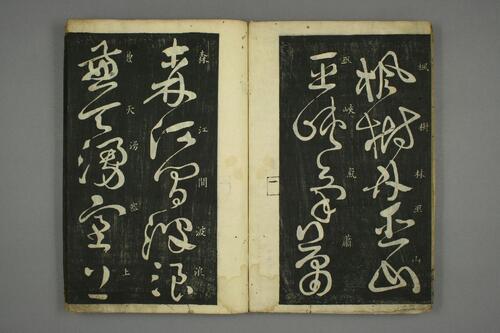 楓樹林巫山
楓樹林巫山
巫峽氣蕭
巫峽氣蕭
森江間波浪
森江間波浪
兼天湧塞上
兼天湧塞上